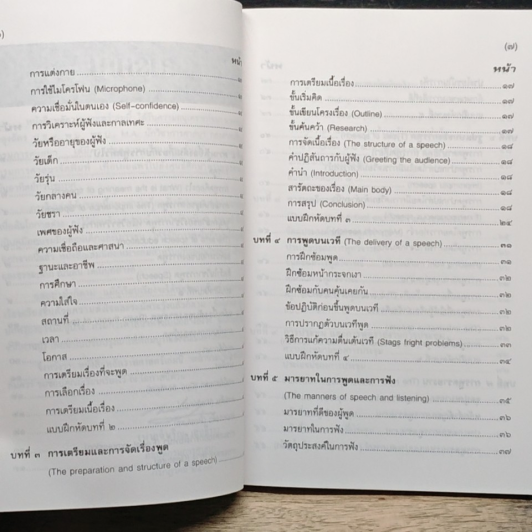 หน้า
การแต่งกาย
การใช้ไมโครโฟน (Microphone)
ความเชื่อมั่นในตนเอง (Self-confidence)
การวิเคราะห์ผู้ฟังและกาลเทศะ
วัยหรืออายุของผู้ฟัง
วัยเด็ก
วัยรุ่น
วัยกลางคน
วัยชรา
เพศของผู้ฟัง
ความเชื่อถือและศาสนา
ฐานะและอาชีพ
การศึกษา
ความใส่ใจ
สถานที่
เวลา
โอกาส
การเตรียมเรื่องที่จะพูด
การเลือกเรื่อง
การเตรียมเนื้อเรื่อง
แบบฝึกหัดบทที่ ๒
บทที่ ๓ การเตรียมและการจัดเรื่องพูด
(The preparation and structure of a speech)
(๗)
หน้า
การเตรียมเนื้อเรื่อง ๑๗
ขั้นเริ่มคิด ๑๗
ขั้นเขียนโครงเรื่อง (Outline) ๑๗
ขั้นค้นคว้า (Research) ๑๗
การจัดเนื้อเรื่อง (The structure of a speech) ๑๘
คำปฏิสันถารกับผู้ฟัง (Greeting the audience) ๑๘
คำนำ (Introduction) ๑๘
สารัตถะของเรื่อง (Main body) ๑๘
การสรุป (Conclusion) ๑๘
แบบฝึกหัดบทที่ ๓ ๒๔
บทที่ ๔ การพูดบนเวที (The delivery of a speech) ๓๑
การฝึกซ้อมพูด ๓๑
ฝึกซ้อมหน้ากระจกเงา ๓๒
ฝึกซ้อมกับคนคุ้นเคยกัน ๓๒
ข้อปฏิบัติก่อนขึ้นพูดบนเวที ๓๒
การปรากฏตัวบนเวทีพูด ๓๒
วิธีการแก้ความตื่นเต้นเวที (Stags fright problems) ๓๓
แบบฝึกหัดบทที่ ๔ ๓๔
บทที่ ๕ มารยาทในการพูดและการฟัง
(The manners of speech and listening) ๓๕
มารยาทที่ดีของผู้พูด ๓๖
มารยาทในการฟัง ๓๖
วัตถุประสงค์ในการฟัง ๓๗